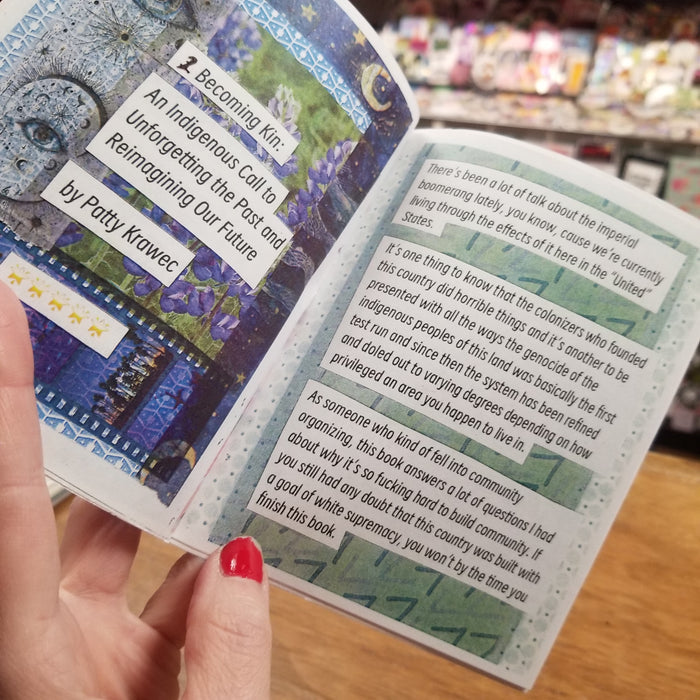 2 Becoming Kin:
An Indigenous Call to
Unforgetting the Past and
Reimagining Our Future
by Patty Krawec
There's been a lot of talk about the imperial
boomerang lately, you know, cause we're currently
living through the effects of it here in the "United"
States.
It's one thing to know that the colonizers who founded
this country did horrible things and it's another to be
presented with all the ways the genocide of the
indigenous peoples of this land was basically the first
test run and since then the system has been refined
and doled out to varying degrees depending on how
privileged an area you happen to live in.
As someone who kind of fell into community
organizing, this book answers a lot of questions I had
about why it's so fucking hard to build community. If
you still had any doubt that this country was built with
a goal of white supremacy, you won't by the time you
finish this book.